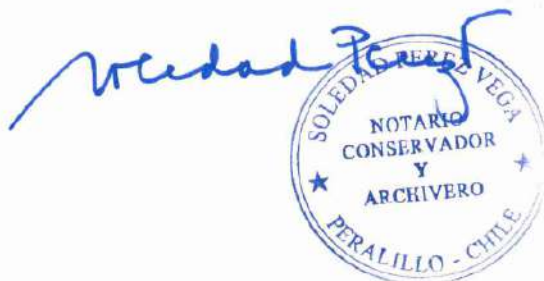 Soledad Perez
SOLEDAD PEREZ VEGA
NOTARIO
CONSERVADOR
Y
ARCHIVERO
PERALILLO - CHILE